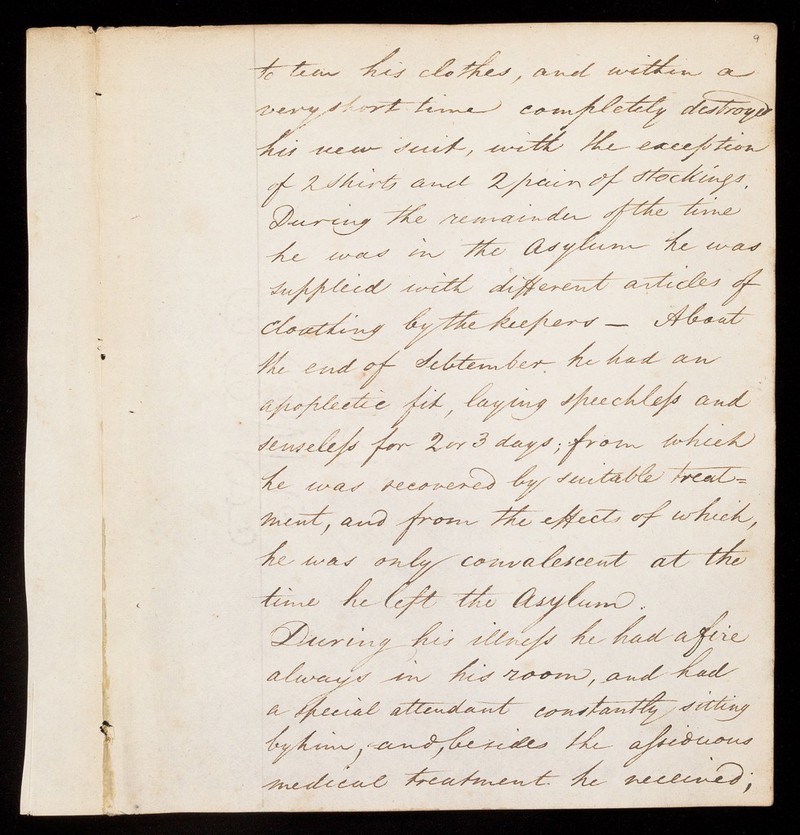 9
to tear his clothes, and within a
very short time completely destroyed
his new suit, with the exception
of 2 shirts and 2 pair of stockings.
During the remainder of the time
he was in the Asylum he was
suppleid with different articles of
cloathing by the keepers — About
the end of Sebtember he had an
apoplectic fit, laying speechless and
senseless for 2 or 3 days; from which
he was recovered by suitable treat=
ment, and from the effects of which,
he was only convalescent at the
time he left the Asylum.
During his illness he had a fire
always in his room, and had
a special attendant constantly sitting
by him, and, besides the assiduous
medical treatment he received;